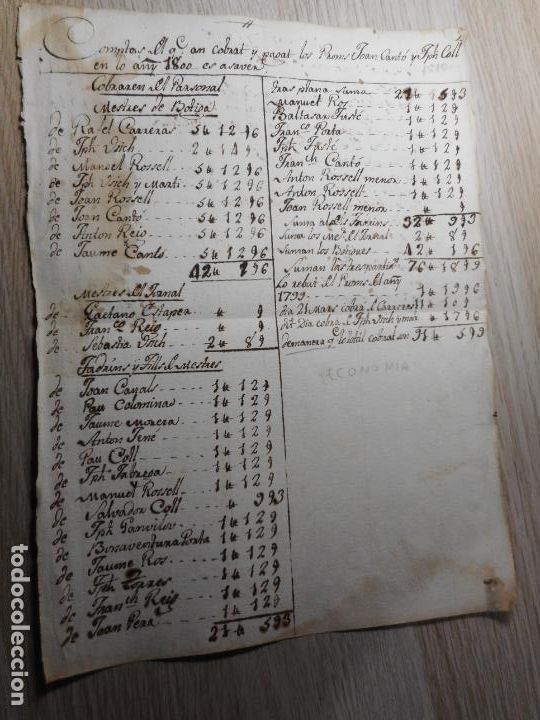 Comptes del q.e an cobrat y pagat los Proms Joan Cantó y Jph Coll
en lo añy 1800 es a saver
Cobraren del Personal
Mestres de Botiga
de Rafel Carreras 5 ₶ 12 9 6
de Jph Usich 2 ₶ 14 9
de Manuel Rossell 5 ₶ 12 9 6
de Jph Usich y Marti 5 ₶ 12 9 6
de Joan Rossell 5 ₶ 12 9 6
de Joan Cantó 5 ₶ 12 9 6
de Anton Reig 5 ₶ 12 9 6
de Jaume Cantó 5 ₶ 12 9 6
42 ₶ 1 9 6
Mestres del Jornal
de Gaetano Estaper ₶ 9
de Fran.co Reig ₶ 9
de Sebastia Usich 2 ₶ 8 9
Fadrins y Fills de Mestres
de Joan Canals 1 ₶ 12 9
de Pau Colominas 1 ₶ 12 9
de Jaume Morera 1 ₶ 12 9
de Anton Tené 1 ₶ 12 9
de Pau Coll 1 ₶ 12 9
de Jph Fabrega 1 ₶ 12 9
de Manuel Rossell 1 ₶ 12 9
de Salvador Coll ₶ 9 9 3
de Jph Ganvilov 1 ₶ 12 9
de Bonaventura Porta 1 ₶ 12 9
de Jaume Ros 1 ₶ 12 9
de Jph Torres 1 ₶ 12 9
de Fran.ch Reig 1 ₶ 12 9
de Joan Pera 1 ₶ 12 9
21 ₶ 5 9 3
tras plana suma 21 ₶ 5 9 3
Manuel Ros 1 ₶ 12 9
Baltasar Fusté 1 ₶ 12 9
Fran.co Porta 1 ₶ 12 9
Jph Fusté 1 ₶ 12 9
Fran.ch Cantó 1 ₶ 12 9
Anton Rossell menor 1 ₶ 12 9
Anton Rossell 1 ₶ 12 9
Joan Rossell menor ₶ 9
Suma dels Fadrins 32 ₶ 9 9 3
Suma los Me.s del Jornal 2 ₶ 8 9
Suman los Botigues 42 ₶ 1 9 6
Suman las tres partidas 76 ₶ 18 9 9
Lo rebut del Proms del añy
1799 1 ₶ 19 9 6
dia 21 Mars cobra de Carreras 11 ₶ 10 9
dit Dia cobra de Jph Usich y mar ₶ 17 9 6
de manera q.e lo total cobrat son 91 ₶ 5 9 9
ECONOMIA
todocoleccion